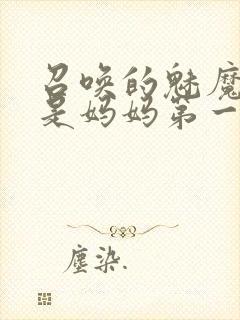 召唤的魅魔
是妈妈第一
塵染.